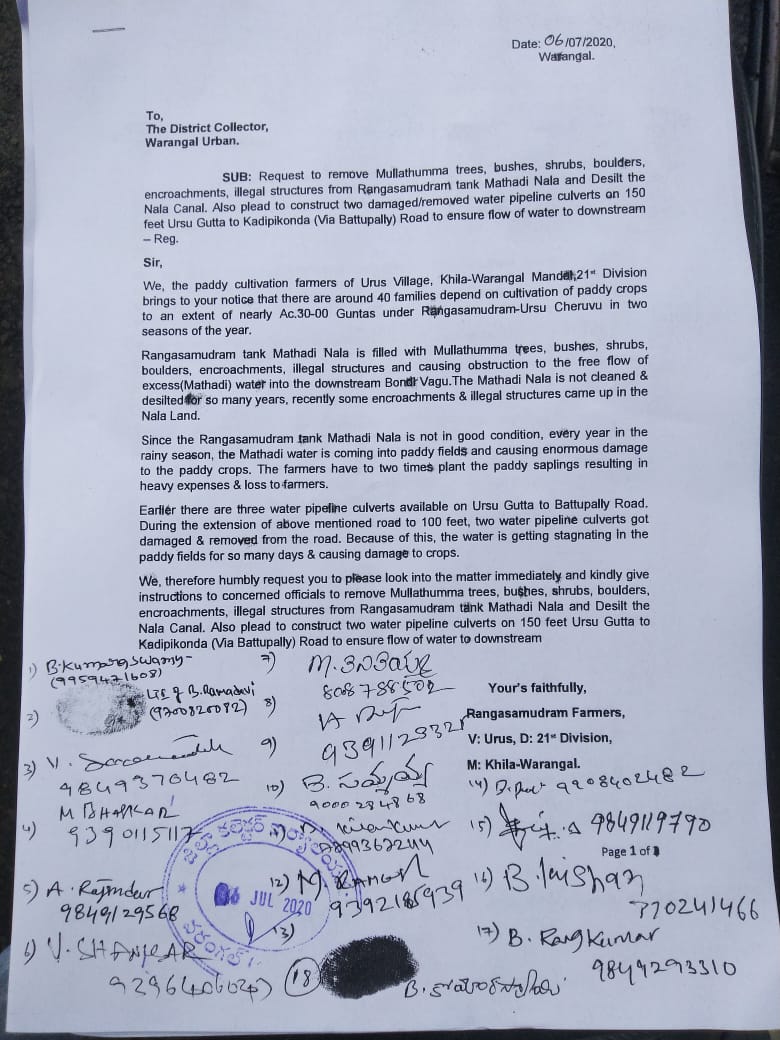 Date: 06/07/2020,
Warangal.
To,
The District Collector,
Warangal Urban.
SUB: Request to remove Mullathumma trees, bushes, shrubs, boulders,
encroachments, illegal structures from Rangasamudram tank Mathadi Nala and Desilt the
Nala Canal. Also plead to construct two damaged/removed water pipeline culverts on 150
feet Ursu Gutta to Kadipikonda (Via Battupally) Road to ensure flow of water to downstream
– Reg.
Sir,
We, the paddy cultivation farmers of Urus Village, Khila-Warangal Mandal,21st Division
brings to your notice that there are around 40 families depend on cultivation of paddy crops
to an extent of nearly Ac.30-00 Guntas under Rangasamudram-Ursu Cheruvu in two
seasons of the year.
Rangasamudram tank Mathadi Nala is filled with Mullathumma trees, bushes, shrubs,
boulders, encroachments, illegal structures and causing obstruction to the free flow of
excess(Mathadi) water into the downstream Bondi Vagu.The Mathadi Nala is not cleaned &
desilted for so many years, recently some encroachments & illegal structures came up in the
Nala Land.
Since the Rangasamudram tank Mathadi Nala is not in good condition, every year in the
rainy season, the Mathadi water is coming into paddy fields and causing enormous damage
to the paddy crops. The farmers have to two times plant the paddy saplings resulting in
heavy expenses & loss to farmers.
Earlier there are three water pipeline culverts available on Ursu Gutta to Battupally Road.
During the extension of above mentioned road to 100 feet, two water pipeline culverts got
damaged & removed from the road. Because of this, the water is getting stagnating in the
paddy fields for so many days & causing damage to crops.
We, therefore humbly request you to please look into the matter immediately and kindly give
instructions to concerned officials to remove Mullathumma trees, bushes, shrubs, boulders,
encroachments, illegal structures from Rangasamudram tank Mathadi Nala and Desilt the
Nala Canal. Also plead to construct two water pipeline culverts on 150 feet Ursu Gutta to
Kadipikonda (Via Battupally) Road to ensure flow of water to downstream
Your's faithfully,
Rangasamudram Farmers,
V: Urus, D: 21st Division,
M: Khila-Warangal.
Page 1 of
1) B.Kumaraswamy
(9959471608)
2) LTI of B.Ramadevi
(9700820092)
3) V.
9849370482
4) M BHASKAR
9390115117
5) A. Rajender
9849129568
6) V. SHANKAR
7)
808738502
8)
9)
10) B. సమ్మయ్య
9000284868
11)
12) M. RAMESH
9392185939
13)
06 JUL 2020
14) 9908402482
15) 9849119790
16) B.
770241466
17) B. Rangkumar
9849293310
18